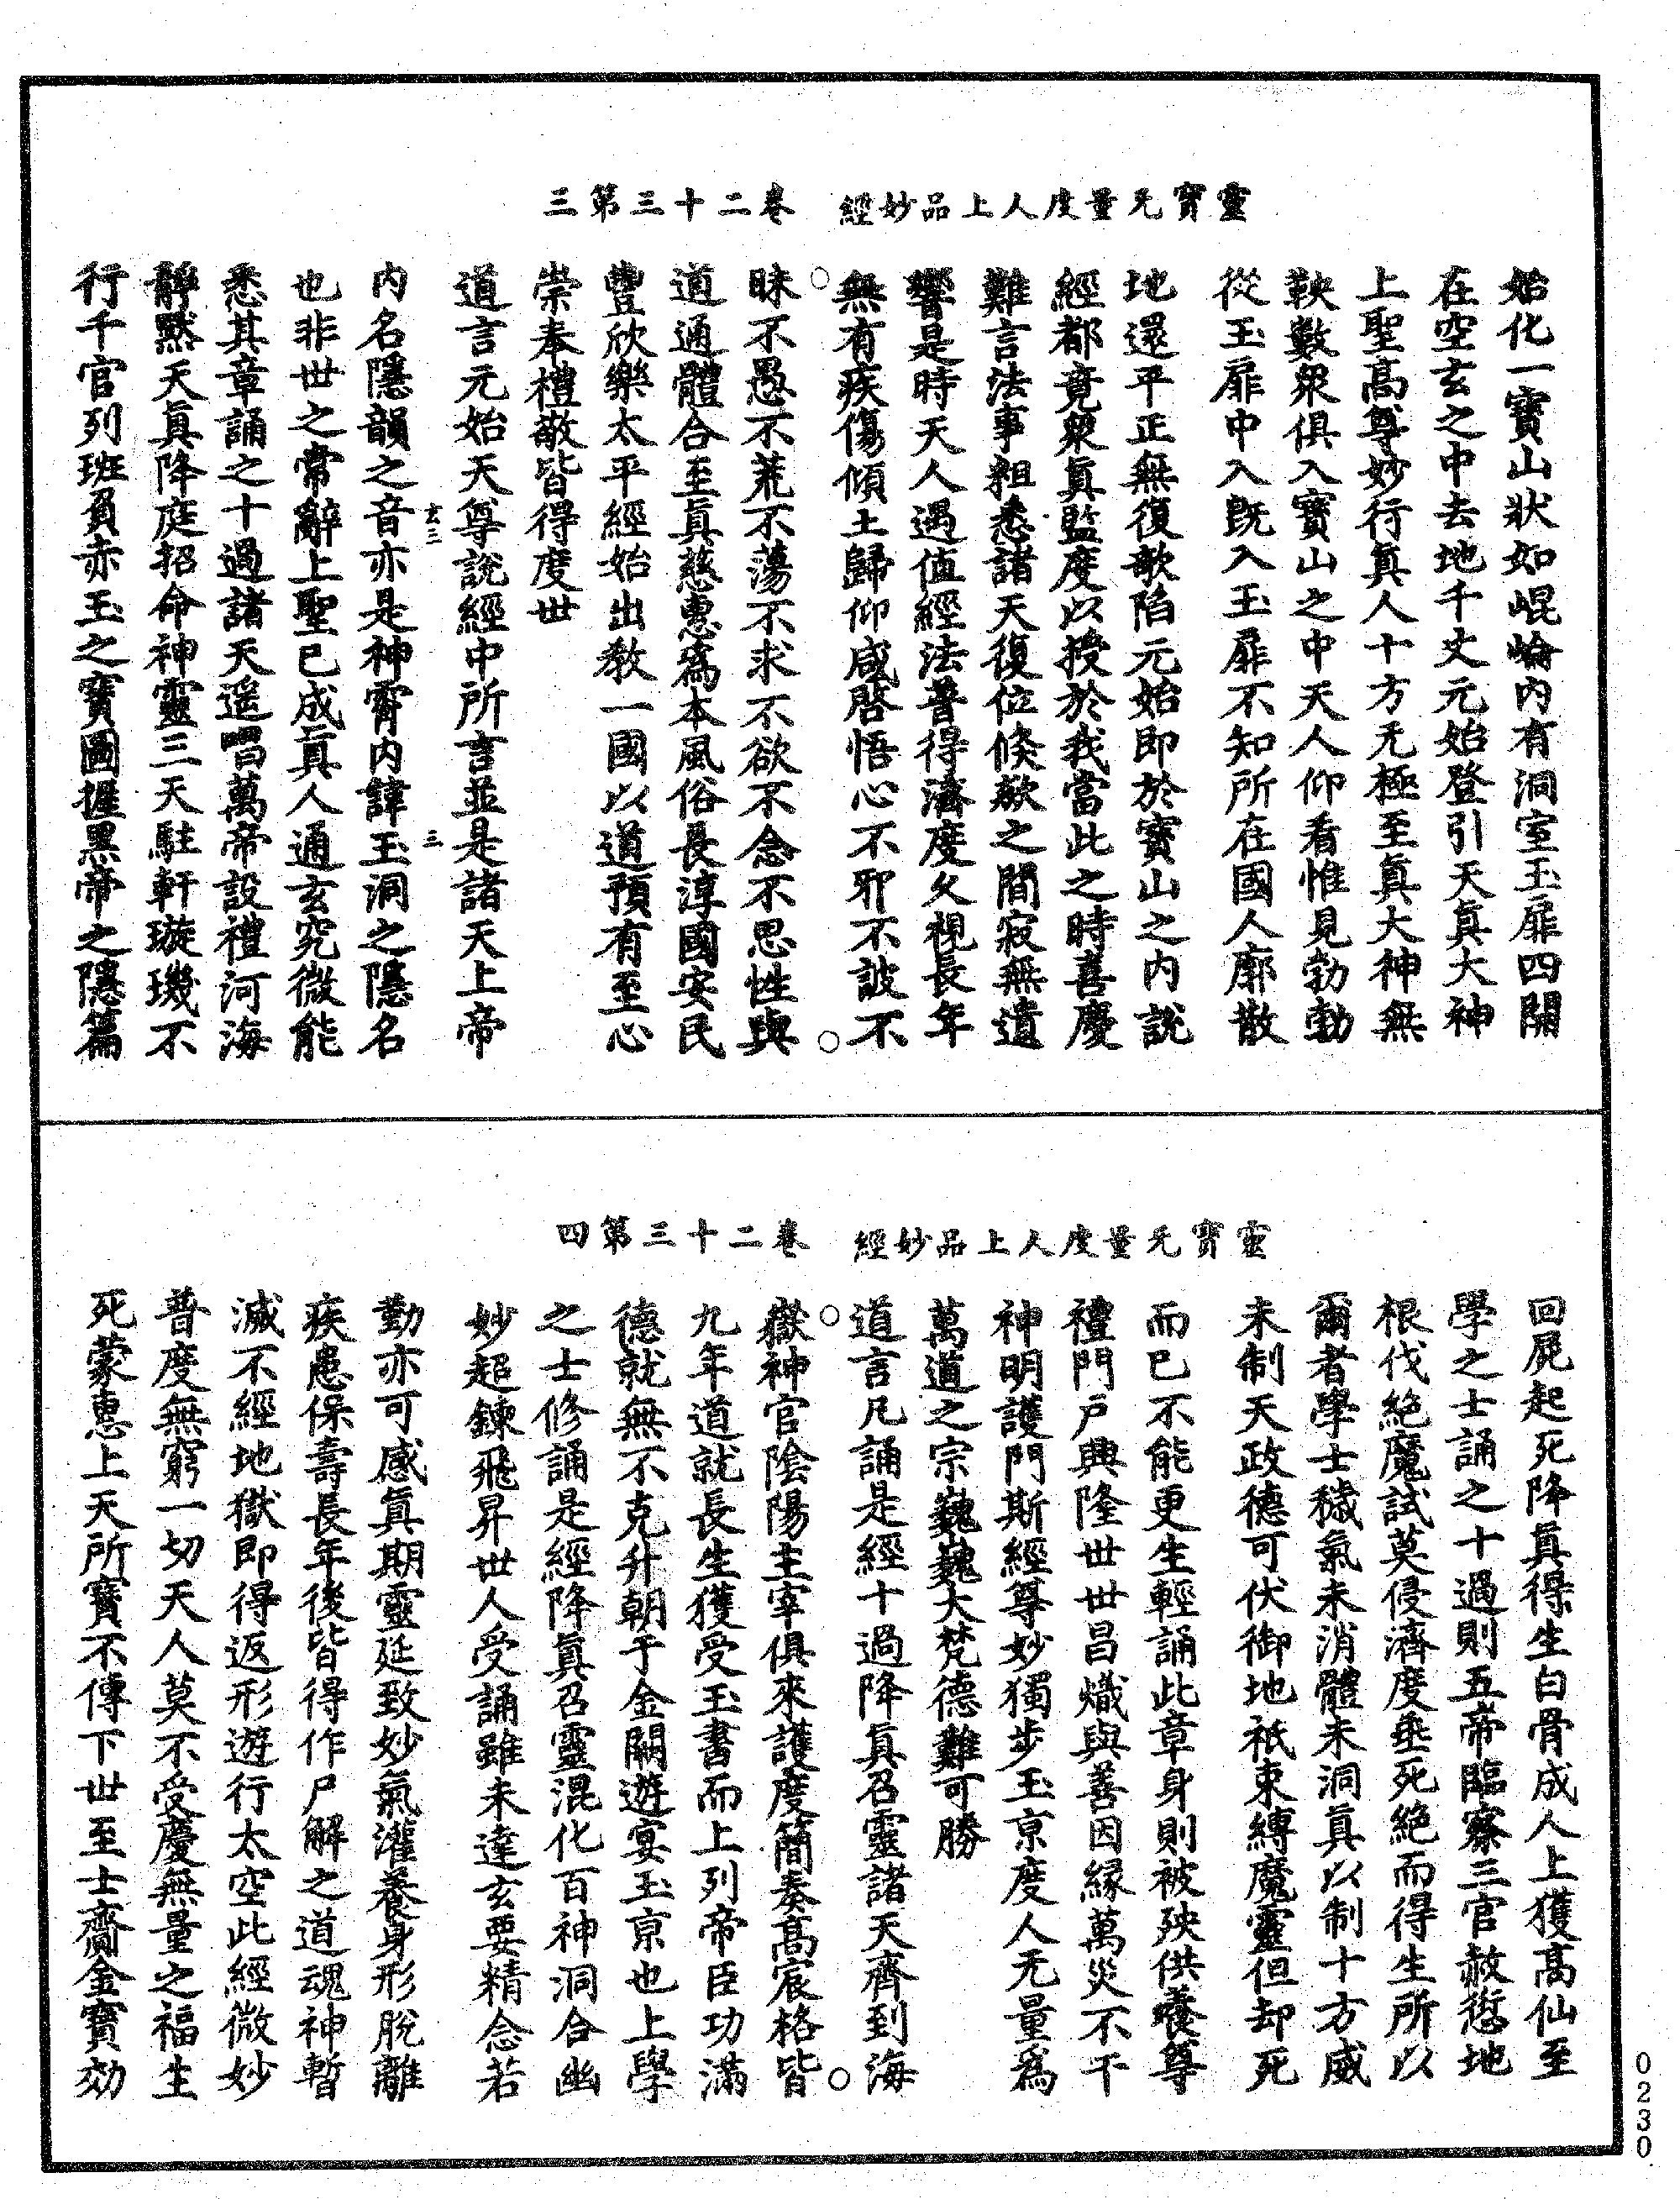 靈寶无量度人上品妙經 卷二十三第三
始化一寶山狀如崐崘内有洞室玉扉四開
在空玄之中去地千丈元始登引天真大神
上聖高尊妙行真人十方无極至真大神無
鞅數衆俱入寶山之中天人仰看惟見勃勃
從玉扉中入既入玉扉不知所在國人廓散
地還平正無復欹陷元始即於寶山之内說
經都竟衆真監度以授於我當此之時喜慶
難言法事粗悉諸天復位倐欻之間寂無遺
響是時天人遇值經法普得濟度父視長年
無有疾傷傾土歸仰咸啓悟心不邪不詖不
昧不愚不荒不蕩不求不欲不念不思性與
道通體合至真慈惠爲本風俗長淳國安民
豐欣樂太平經始出教一國以道預有至心
崇奉禮敬皆得度世
道言元始天尊說經中所言並是諸天上帝
玄三 三
内名隱韻之音亦是神霄内諱玉洞之隱名
也非世之常辭上聖已成真人通玄究微能
悉其章誦之十過諸天遥唱萬帝設禮河海
靜默天真降庭招命神靈三天駐軒璇璣不
行千官列班負赤玉之寶圖握黑帝之隱篇
靈寶无量度人上品妙經 卷二十三第四
回屍起死降真得生白骨成人上獲高仙至
學之士誦之十過則五帝臨察三官赦愆地
根伐絕魔試莫侵濟度垂死絕而得生所以
爾者學士穢氣未消體未洞真以制十方威
未制天政德可伏御地祇束縛魔靈但却死
而已不能更生輕誦此章身則被殃供養尊
禮門戶興隆世世昌熾與善因緣萬災不干
神明護門斯經尊妙獨步玉京度人无量爲
萬道之宗巍巍大梵德難可勝
道言凡誦是經十過降真召靈諸天齊到海
嶽神官陰陽主宰俱來護度簡奏高宸格皆
九年道就長生獲受玉書而上列帝臣功滿
德就無不克升朝于金闕遊宴玉京也上學
之士修誦是經降真召靈混化百神洞合幽
妙超鍊飛昇世人受誦雖未達玄要精念若
勤亦可感真期靈延致妙氣灌養身形脫離
疾患保壽長年後皆得作尸解之道魂神暫
滅不經地獄即得返形遊行太空此經微妙
普度無窮一切天人莫不受慶無量之福生
死蒙惠上天所寶不傳下世至士齎金寶効
0230